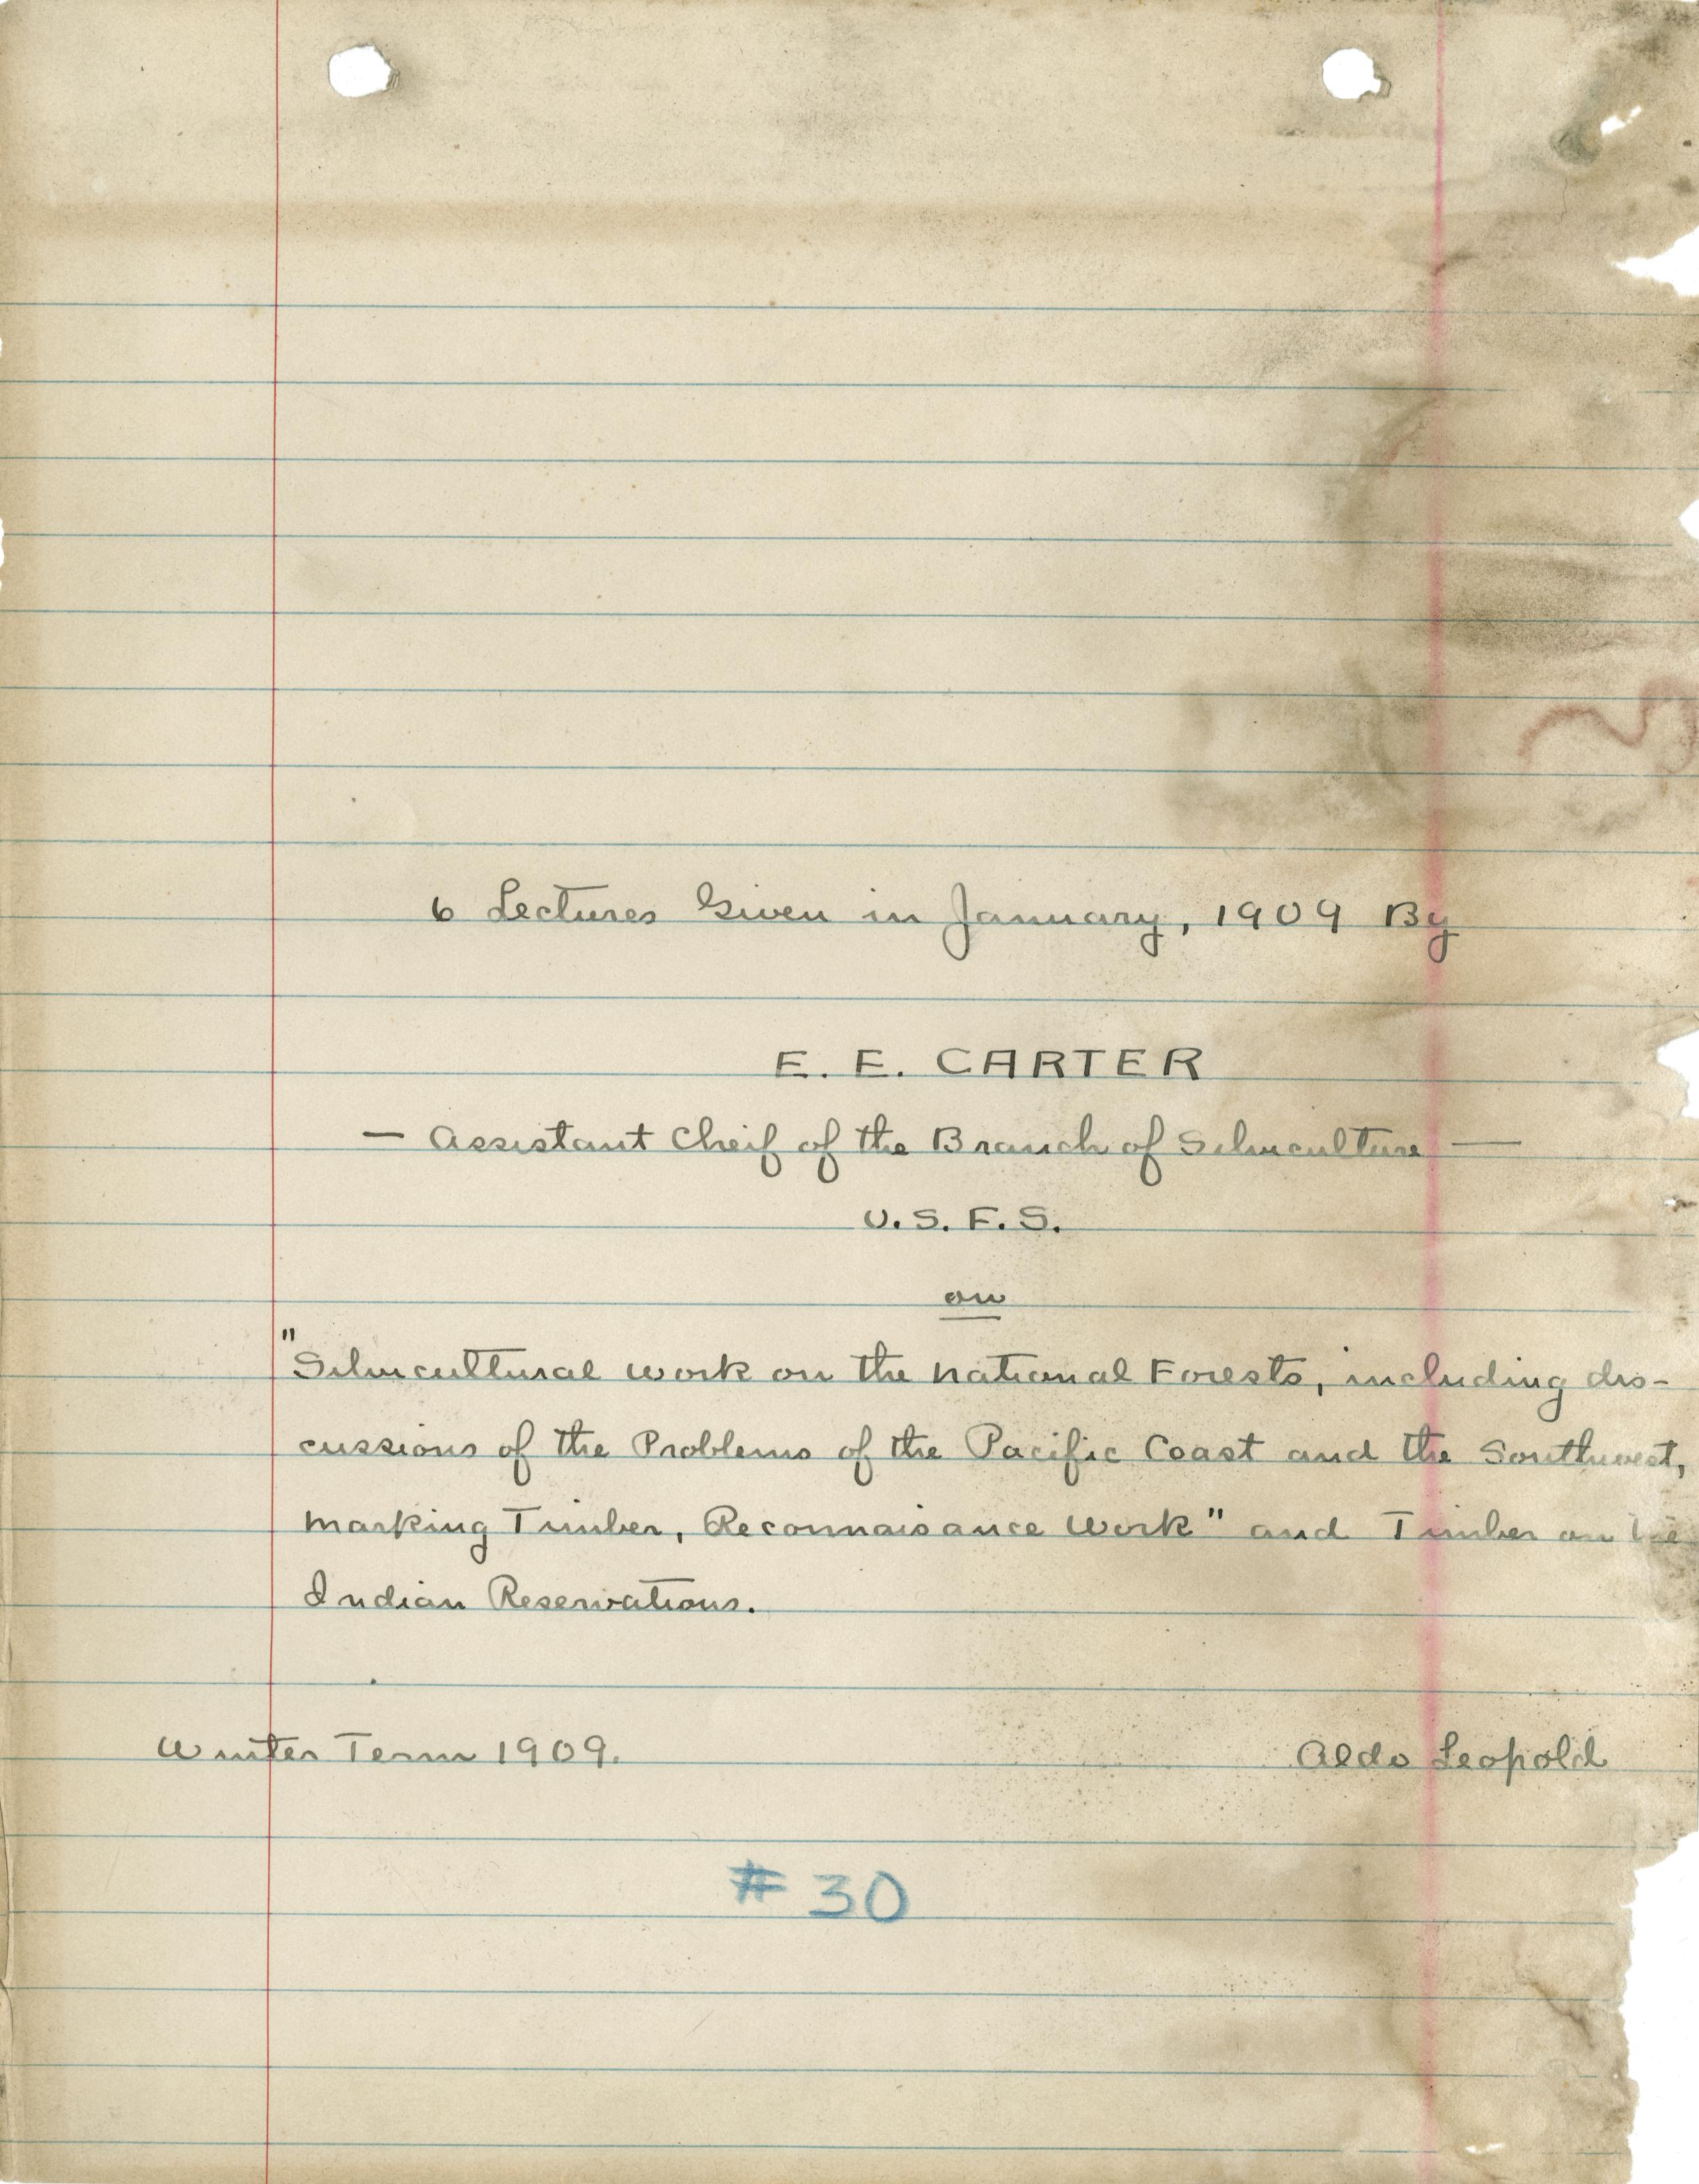 6 Lectures Given in January, 1909 By
E. E. CARTER
— Assistant Cheif of the Branch of Silviculture —
U.S.F.S.
on
"Silvicultural work on the National Forests, including dis-
cussions of the Problems of the Pacific Coast and the Southwest,
Marking Timber, Reconnaisance Work" and Timber on the
Indian Reservations.
Winter Term 1909. Aldo Leopold
# 30